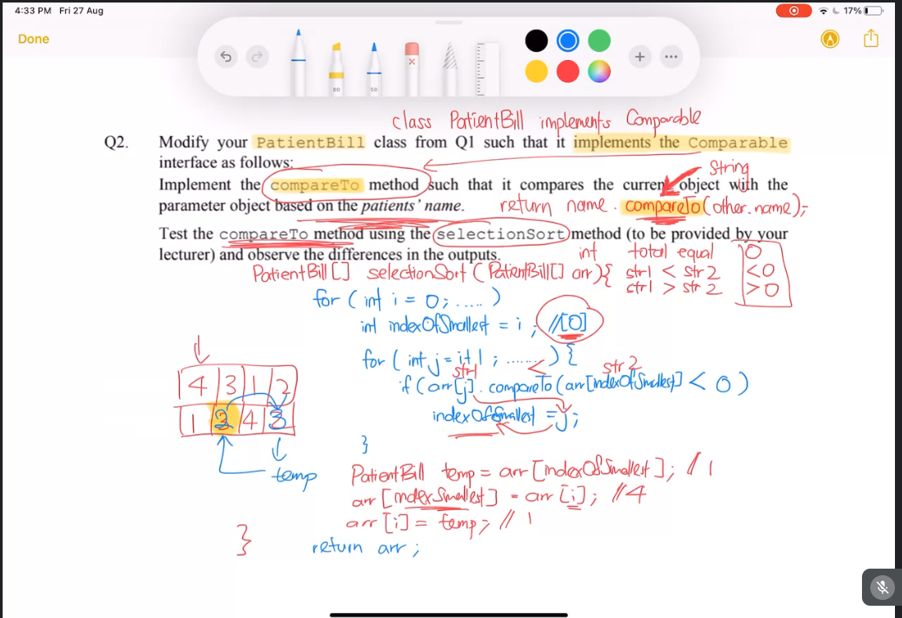 4:33 PM Fri 27 Aug
17%
Done
50
50
class PatientBill implements Comparable
Q2. Modify your PatientBill class from Q1 such that it implements the Comparable
interface as follows:
String
Implement the compareTo method such that it compares the current object with the
parameter object based on the patients' name. return name.compareTo(other.name);
Test the compareTo method using the selectionSort method (to be provided by your
lecturer) and observe the differences in the outputs.
int total equal 0
PatientBill[] selectionSort (PatientBill[] arr){ str1 < str2 <0
str1 > str2 >0
for (int i = 0; .....)
int indexOfSmallest = i ; //[0]
for (int j = i+1 ; ...... ) {
str1 < str2
if (arr[j].compareTo(arr[indexOfSmallest] < 0)
indexOfSmallest = j;
}
4 3 1 2
1 2 4 3
temp
PatientBill temp = arr [indexOfSmallest]; // 1
arr [indexSmallest] = arr [i]; //4
arr [i] = temp; // 1
}
return arr ;